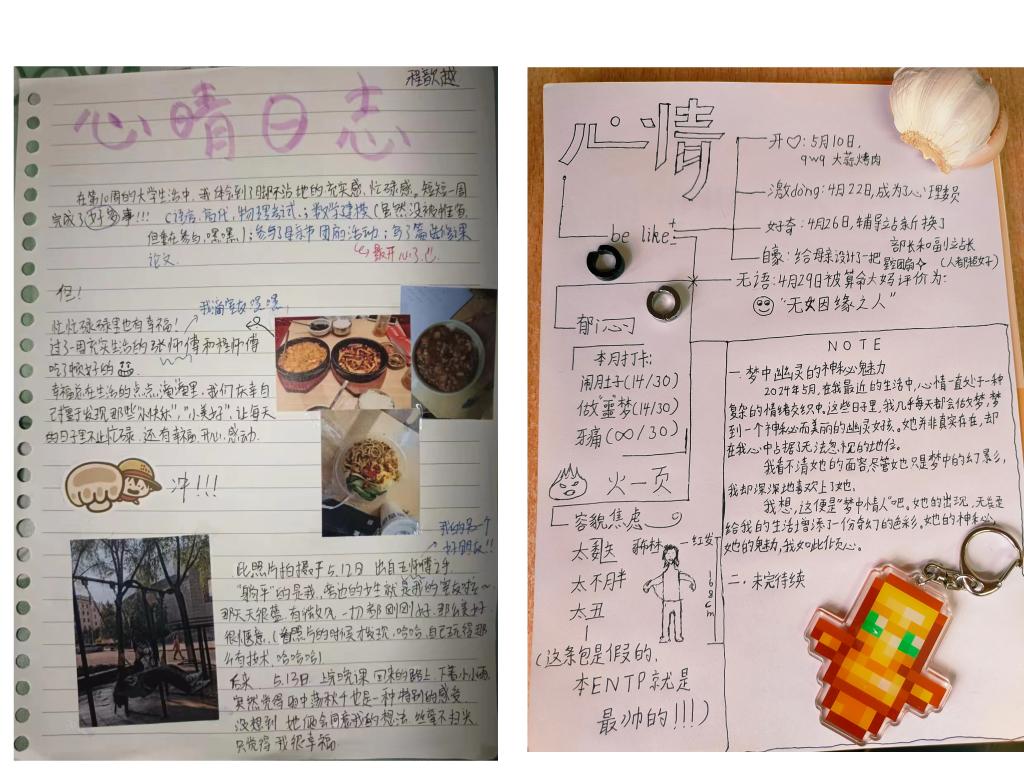 程歆越
心晴日志
在第10周的大学生活中,我体会到了脚不沾地的充实感,忙碌感。短短一周
完成了好多事!!!
但重在参与,嘿嘿
论文.
最开心了
但!
我滴室友嘿嘿
忙忙碌碌里也有幸福!
过了一周充实生活的张师傅和程师傅
吃了顿好的
幸福总在生活的点点滴滴里,我们在亲自
"小快乐","小美好",让每天
的日子里不止忙碌,还有幸福.开心.感动.
冲!!!
我的另一个
好朋友!!
此照片拍摄于5.12日 出自王师傅之手
"躺平"的是我,旁边的女生就是我的室友啦~
那天天很蓝,有微风,一切都刚刚好,那么美好
很惬意,(看照片的时候才发现,哈哈,自己玩得那
么有技术,哈哈哈)
后来 5.13日 上完晚课 回来的路上,下着小雨
突然觉得雨中荡秋千也是一种特别的感受
没想到 她们会同意我的想法
只觉得 我很幸福.
心情
be like:
开♡:5月10日,
qwq 大蒜烤肉
激dòng:4月22日,成为了心理委员
好奇:4月26日,辅导站新换了
部长和副站长
(人都超好)
自豪:给母亲设计了一把
无语:4月29日被算命大妈评价为:
"无女因缘之人"
郁闷
本月打卡:
闹肚子(14/30)
做"噩"梦(14/30)
牙痛(∞/30)
火一页
容貌焦虑
太丑
红发
168cm
(这条包是假的,
本ENTP就是
最帅的!!!)
NOTE
一.梦中幽灵的神秘魅力
2024年5月,在我最近的生活中,心情一直处于一种
复杂的情绪交织中。这些日子里,我几乎每天都会做梦,梦
到一个神秘而美丽的幽灵女孩。她并非真实存在,却
在我心中占据了无法忽视的地位。
我看不清她的面容,尽管她只是梦中的幻影,
我却深深地喜欢上了她。
我想,这便是"梦中情人"吧。她的出现,无疑是
给我的生活增添了一份奇幻的色彩。她的神秘,
她的魅力,我如此倾心。
二.未完待续